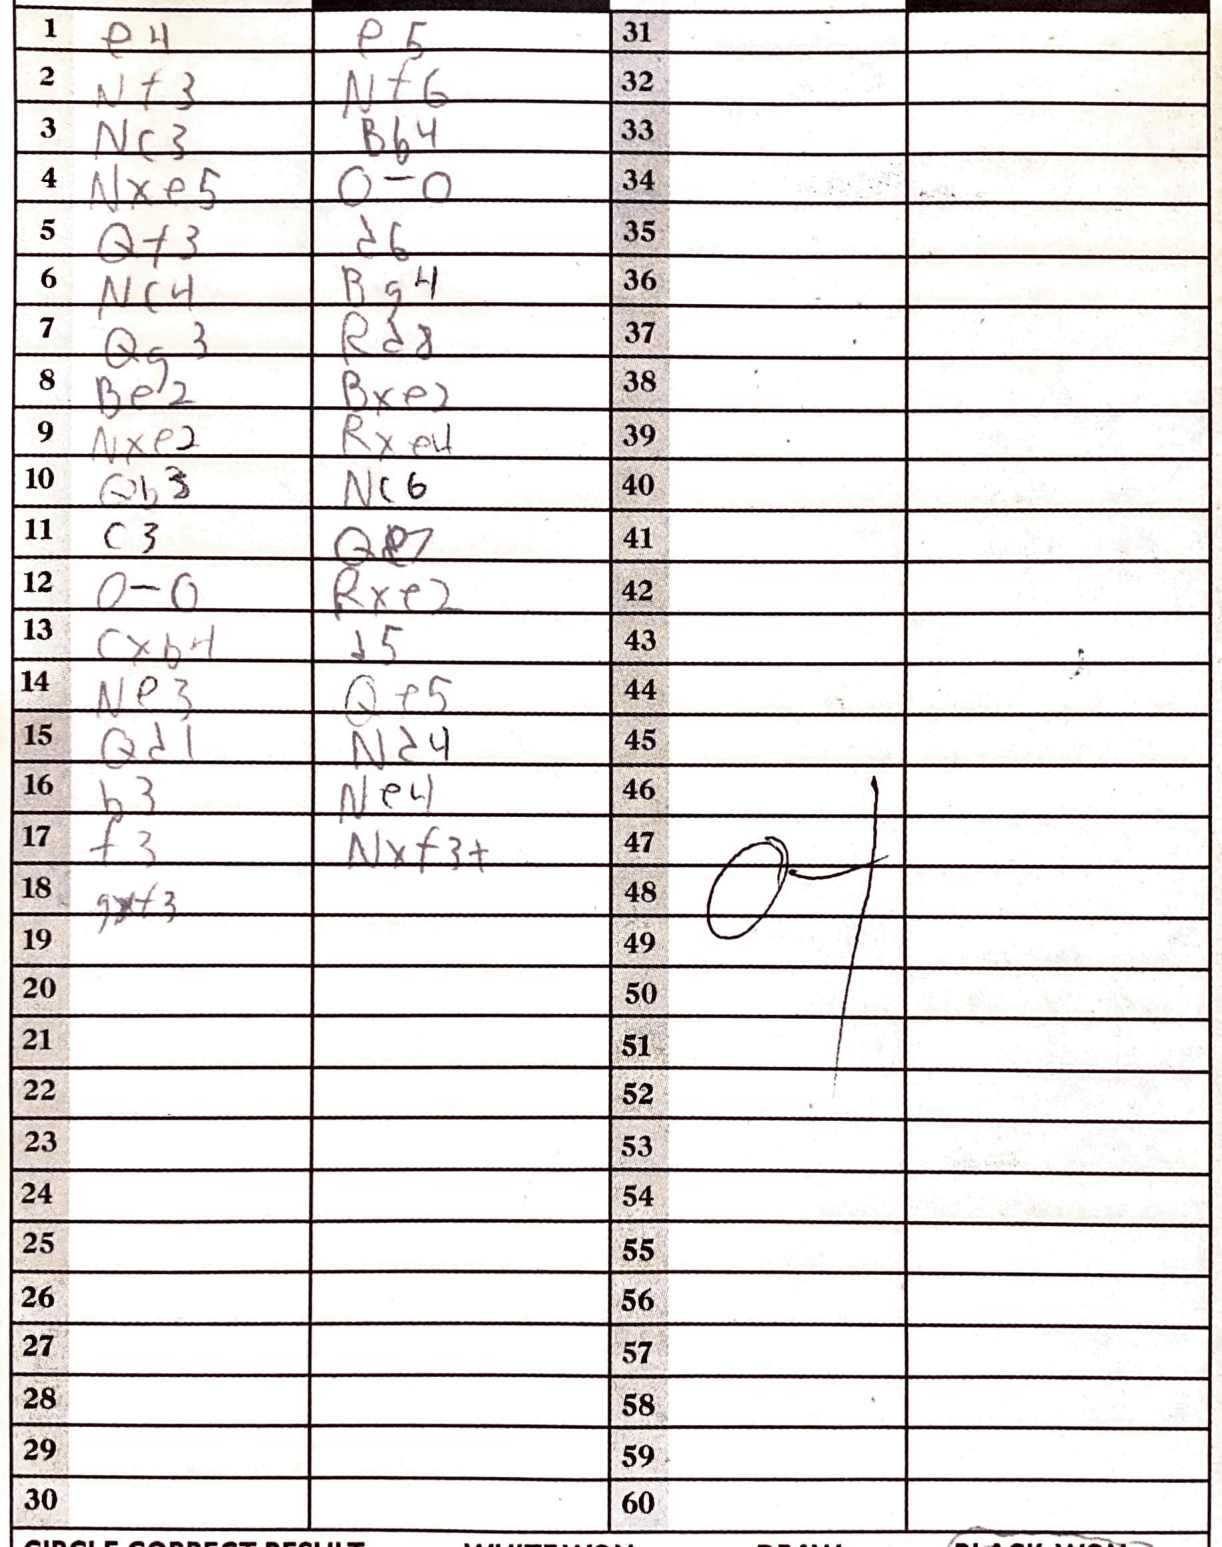 1 e4 e5 31
2 Nf3 Nf6 32
3 Nc3 Bb4 33
4 Nxe5 0-0 34
5 Qf3 d6 35
6 Nc4 Bg4 36
7 Qg3 Rd8 37
8 Be2 Bxe2 38
9 Nxe2 Rxe4 39
10 Qb3 Nc6 40
11 c3 Qe7 41
12 0-0 Rxe2 42
13 cxb4 d5 43
14 Ne3 Qe5 44
15 Qd1 Nd4 45
16 b3 Ne4 46
17 f3 Nxf3+ 47
18 gxf3 48
0-1
19 49
20 50
21 51
22 52
23 53
24 54
25 55
26 56
27 57
28 58
29 59
30 60
CIRCLE CORRECT RESULT WHITE WON DRAW BLACK WON